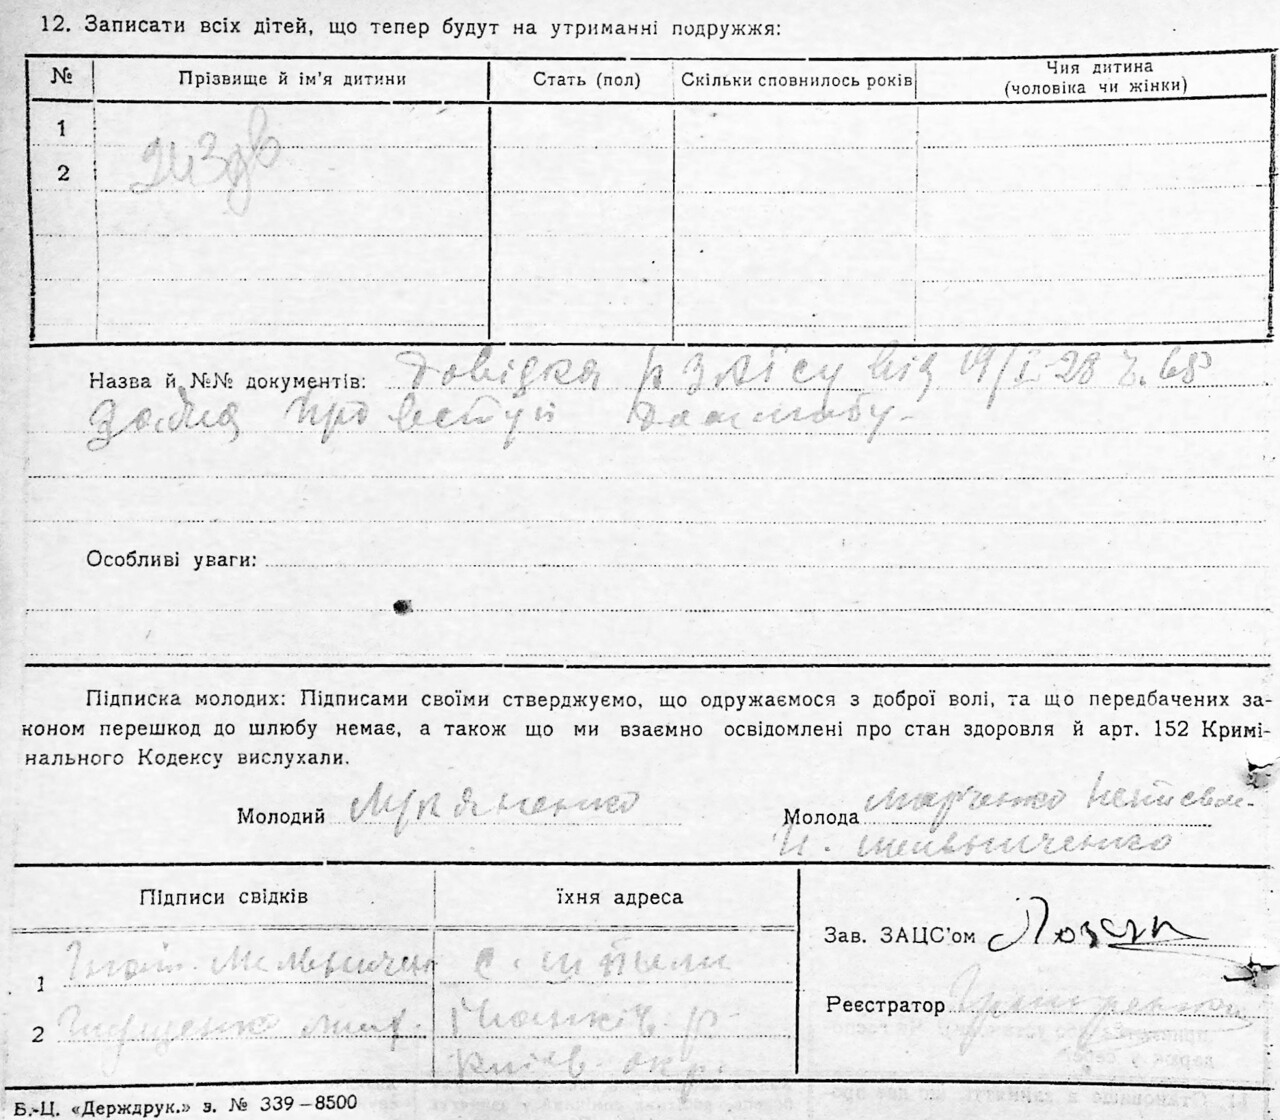 12. Записати всіх дітей, що тепер будут на утриманні подружжя:
№ Прізвище й ім'я дитини Стать (пол) Скільки сповнилось років Чия дитина (чоловіка чи жінки)
1
2
Назва й №№ документів: Довідка РЗАГСу від 19/I-28 ч. 65
про вступ до шлюбу
Особливі уваги:
Підписка молодих: Підписами своїми стверджуємо, що одружаємося з доброї волі, та що передбачених за-
коном перешкод до шлюбу немає, а також що ми взаємно освідомлені про стан здоровля й арт. 152 Кримі-
нального Кодексу вислухали.
Молодий Молода Марченко
Підписи свідків їхня адреса
Зав. ЗАЦС'ом
1 с.
Реєстратор
2 р-
Київ. окр.
Б.-Ц. «Держдрук.» з. № 339–8500